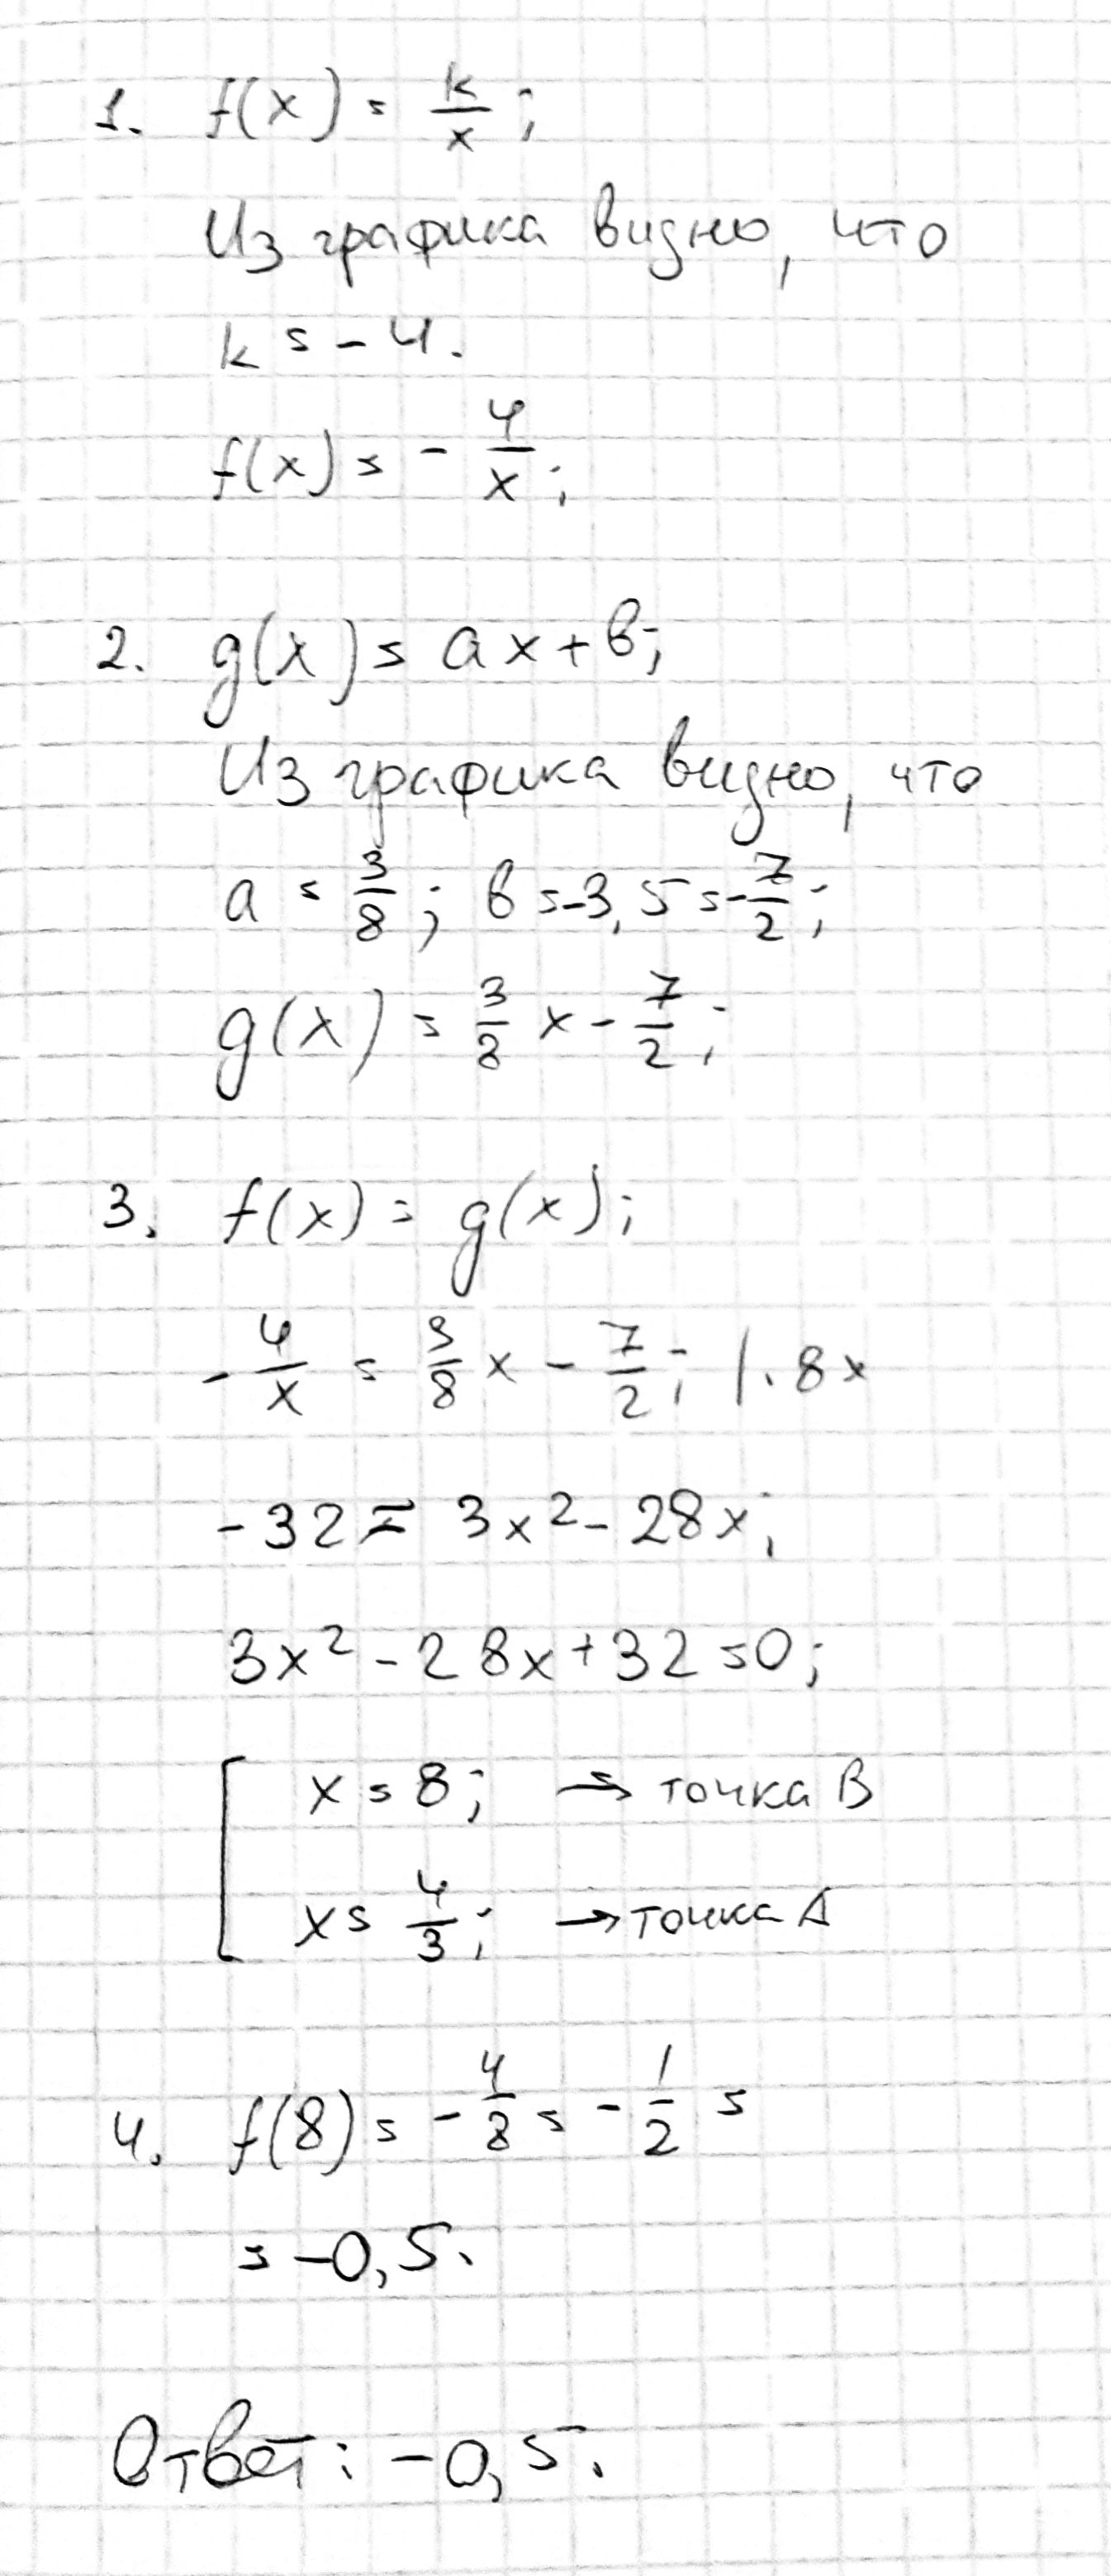 1. f(x) = k/x ;
Из графика видно, что
k = -4.
f(x) = - 4/x ;
2. g(x) = ax + b;
Из графика видно, что
a = 3/8 ; b = -3,5 = - 7/2 ;
g(x) = 3/8 x - 7/2 ;
3. f(x) = g(x);
- 4/x = 3/8 x - 7/2 ; | · 8x
-32 = 3x² - 28x;
3x² - 28x + 32 = 0;
[ x = 8; → точка B
x = 4/3 ; → точка A
4. f(8) = - 4/8 = - 1/2 =
= -0,5.
Ответ: -0,5.